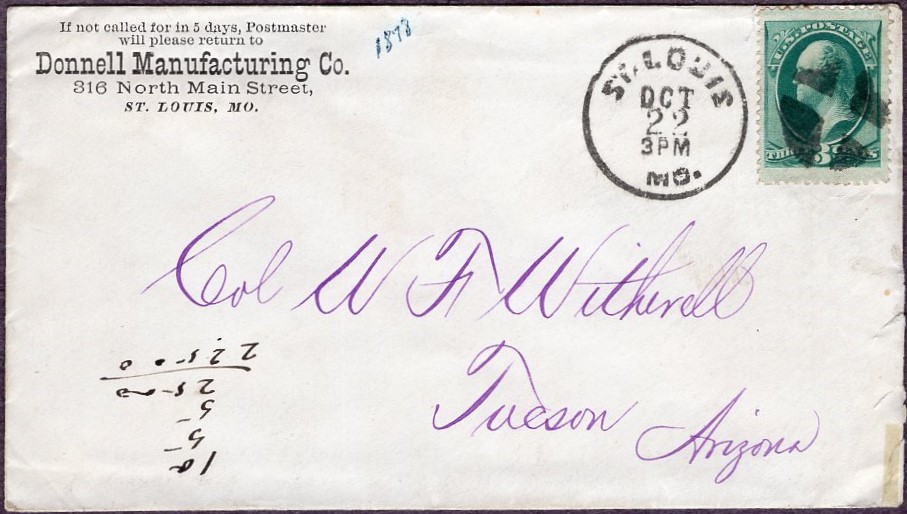 If not called for in 5 days, Postmaster
will please return to
Donnell Manufacturing Co.
316 North Main Street,
ST. LOUIS, MO.
1878
ST. LOUIS
OCT
22
3PM
MO.
U.S. POSTAGE
THREE 3 CENTS
Col W F Witherell
Tucson Arizona
10
5
5